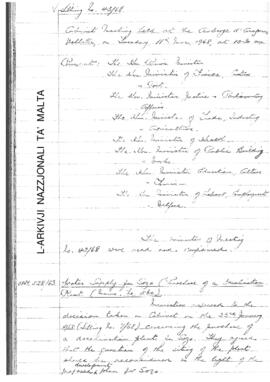 Sitting No. 43/68
Cabinet Meeting held at the Auberge d'Aragon,
Valletta, on Tuesday 18th June, 1968, at 10.30 a.m.
Present: The Hon. Prime Minister
The Hon. Minister of Finance, Customs
& Port
The Hon. Minister Justice & Parliamentary
Affairs
The Hon. Minister of Trade, Industry
& Agriculture
The Hon. Minister of Health
The Hon. Minister of Public Building
& Works
The Hon. Minister Education, Culture
& Tourism
The Hon. Minister of Labour, Employment
& Welfare
The minutes of Meeting
No. 42/68 were read and
OPM/128/63
Water Supply for Gozo (Purchase of a Desalination
Plant
Ministers referred to the
decision taken in Cabinet on the 22nd January
1968 (Sitting No. 7/68) concerning the purchase of
a desalination plant in Gozo. They agreed
that the question of the siting of the plant
should be reconsidered in the light of the
development
plan for Gozo.
L-ARKIVJI NAZZJONALI TA' MALTA